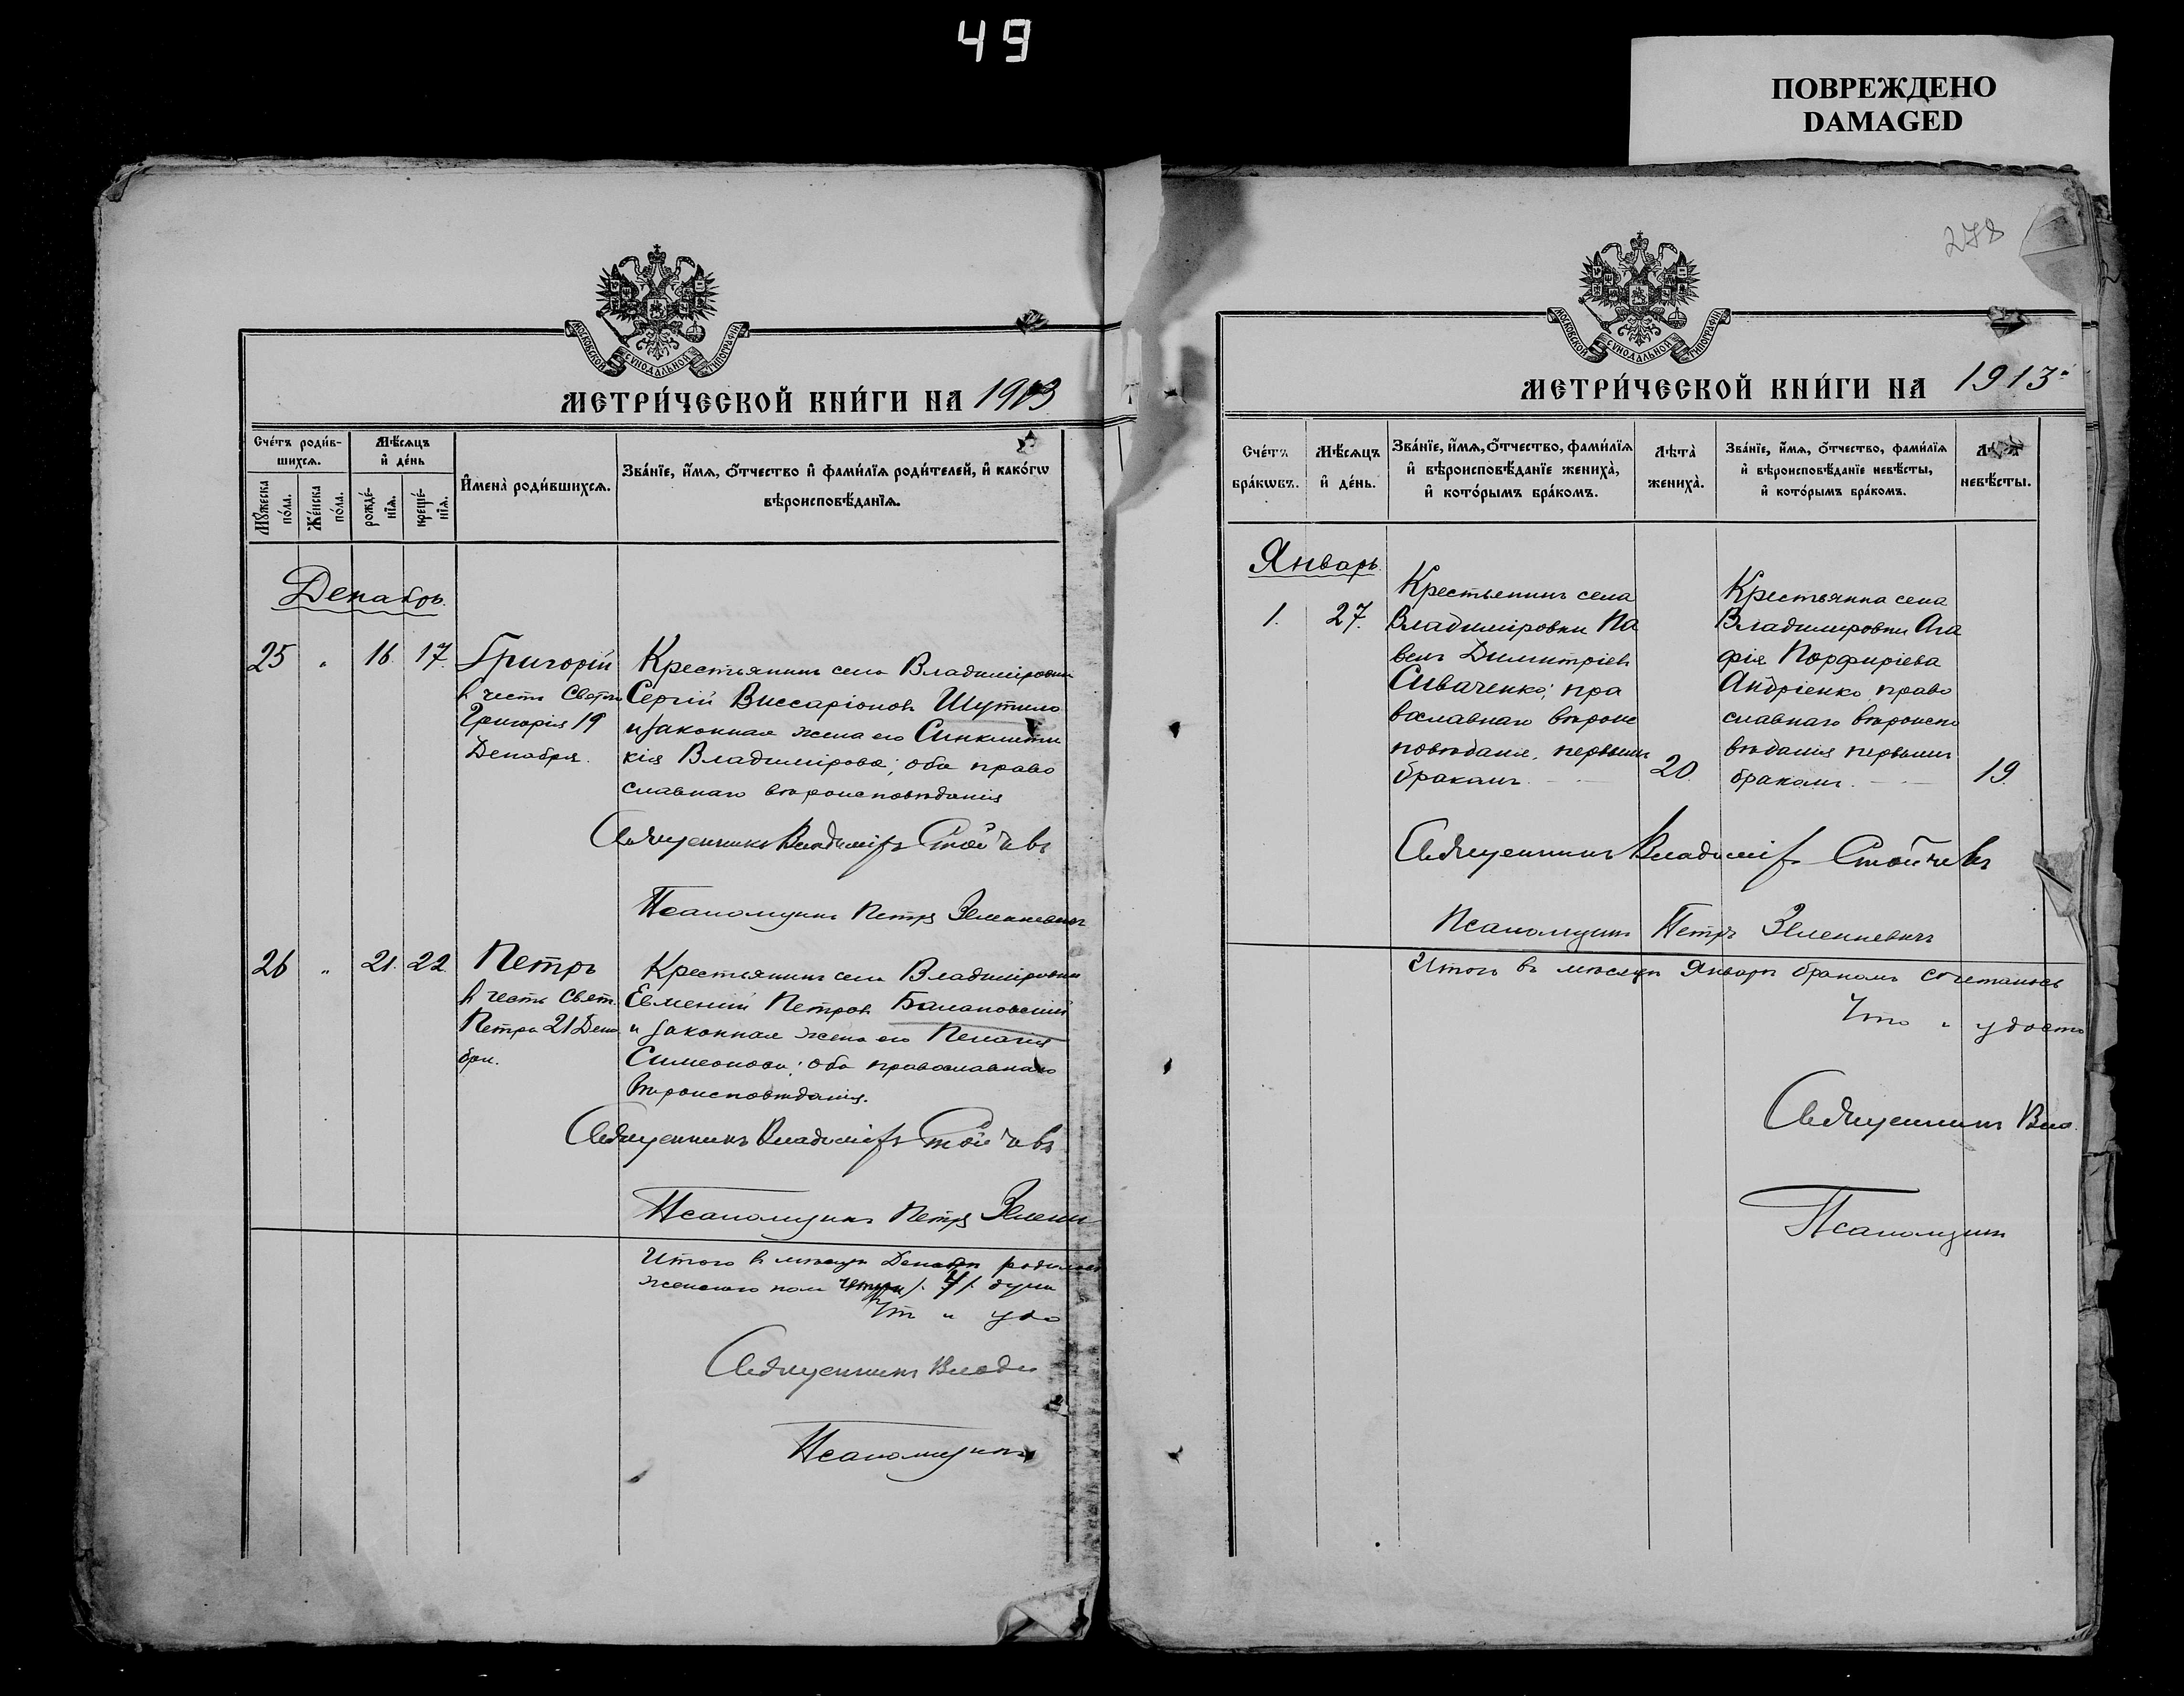 49
ПОВРЕЖДЕНО
DAMAGED
МОСКОВСКОЙ СУНОДАЛЬНОЙ ТИПОГРАФІИ
МЕТРИ́ЧЕСКОЙ КНИ́ГИ НА 1913
Сче́тъ роди́в-
шихся.
Мѣ́сяцъ
и҆ де́нь
Мꙋ́жеска
по́ла.
Же́нска
по́ла.
рожде́-
нїя.
креще́-
нїя.
И҆мена̀ роди́вшихся.
Зва́нїе, и҆́мя, ѻ҆́тчество и҆ фами́лїя роди́телей, и҆ како́гѡ
вѣроисповѣ́данїя.
Декабрь.
25 " 16. 17. Григорій
в честь Свят
Григорія 19
Декабря.
Крестьянинъ села Владиміровки
Сергій Виссаріоновъ Шутило
и законная жена его Синклити
кія Владимірова; оба право
славнаго вѣроисповѣданія
Священникъ Владиміръ Стойчевъ
Псаломщикъ Петръ Зеленкевичъ
26 " 21. 22. Петръ
в честь Свят.
Петра 21 Дека
бря.
Крестьянинъ села Владиміровки
Евменій Петровъ Балановскій
и законная жена его Пелагія
Симеонова; оба православнаго
вѣроисповѣданія.
Священникъ Владиміръ Стойчевъ
Псаломщикъ Петръ Зелен
Итого в мѣсяцѣ Декабрѣ родилось
женскаго пола четыре /. 4 /. души
Что и удо
Священникъ Влади
Псаломщикъ
278
МОСКОВСКОЙ СУНОДАЛЬНОЙ ТИПОГРАФІИ
МЕТРИ́ЧЕСКОЙ КНИ́ГИ НА 1913
Сче́тъ
бра́кѡвъ.
Мѣ́сяцъ
и҆ де́нь.
Зва́нїе, и҆́мя, ѻ҆́тчество, фами́лїя
и҆ вѣроисповѣ́данїе жениха̀,
и҆ кото́рымъ бра́комъ.
Лѣта̀
жениха̀.
Зва́нїе, и҆́мя, ѻ҆́тчество, фами́лїя
и҆ вѣроисповѣ́данїе невѣ́сты,
и҆ кото́рымъ бра́комъ.
невѣ́сты.
Январь.
1. 27.
Крестьянинъ села
Владиміровки Па
велъ Димитріевъ
Сиваченко; пра
вославнаго вѣроис
повѣданія, первымъ
бракомъ.
20.
Крестьянка села
Владиміровки Ага
фія Порфиріева
Андріенко право
славнаго вѣроиспо
вѣданія первымъ
бракомъ.
19.
Священникъ Владиміръ Стойчевъ
Псаломщикъ Петръ Зеленкевичъ
Итого въ мѣсяцѣ Январѣ бракомъ сочеталось
Что и удосто
Священникъ Вла
Псаломщикъ